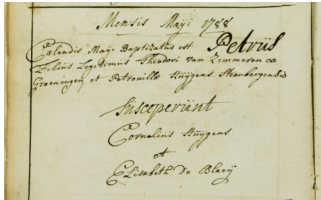 Mensis Maÿi 1788
Calendis Maÿi Baptizatus est Petrus
Filius Legitimus Theodori van Zemmeren ex
Groeningen et Petronilla Huÿgens Steenbergensis
Susceperunt
Cornelius Huÿgens
et
Elisabeth De Blaeÿ